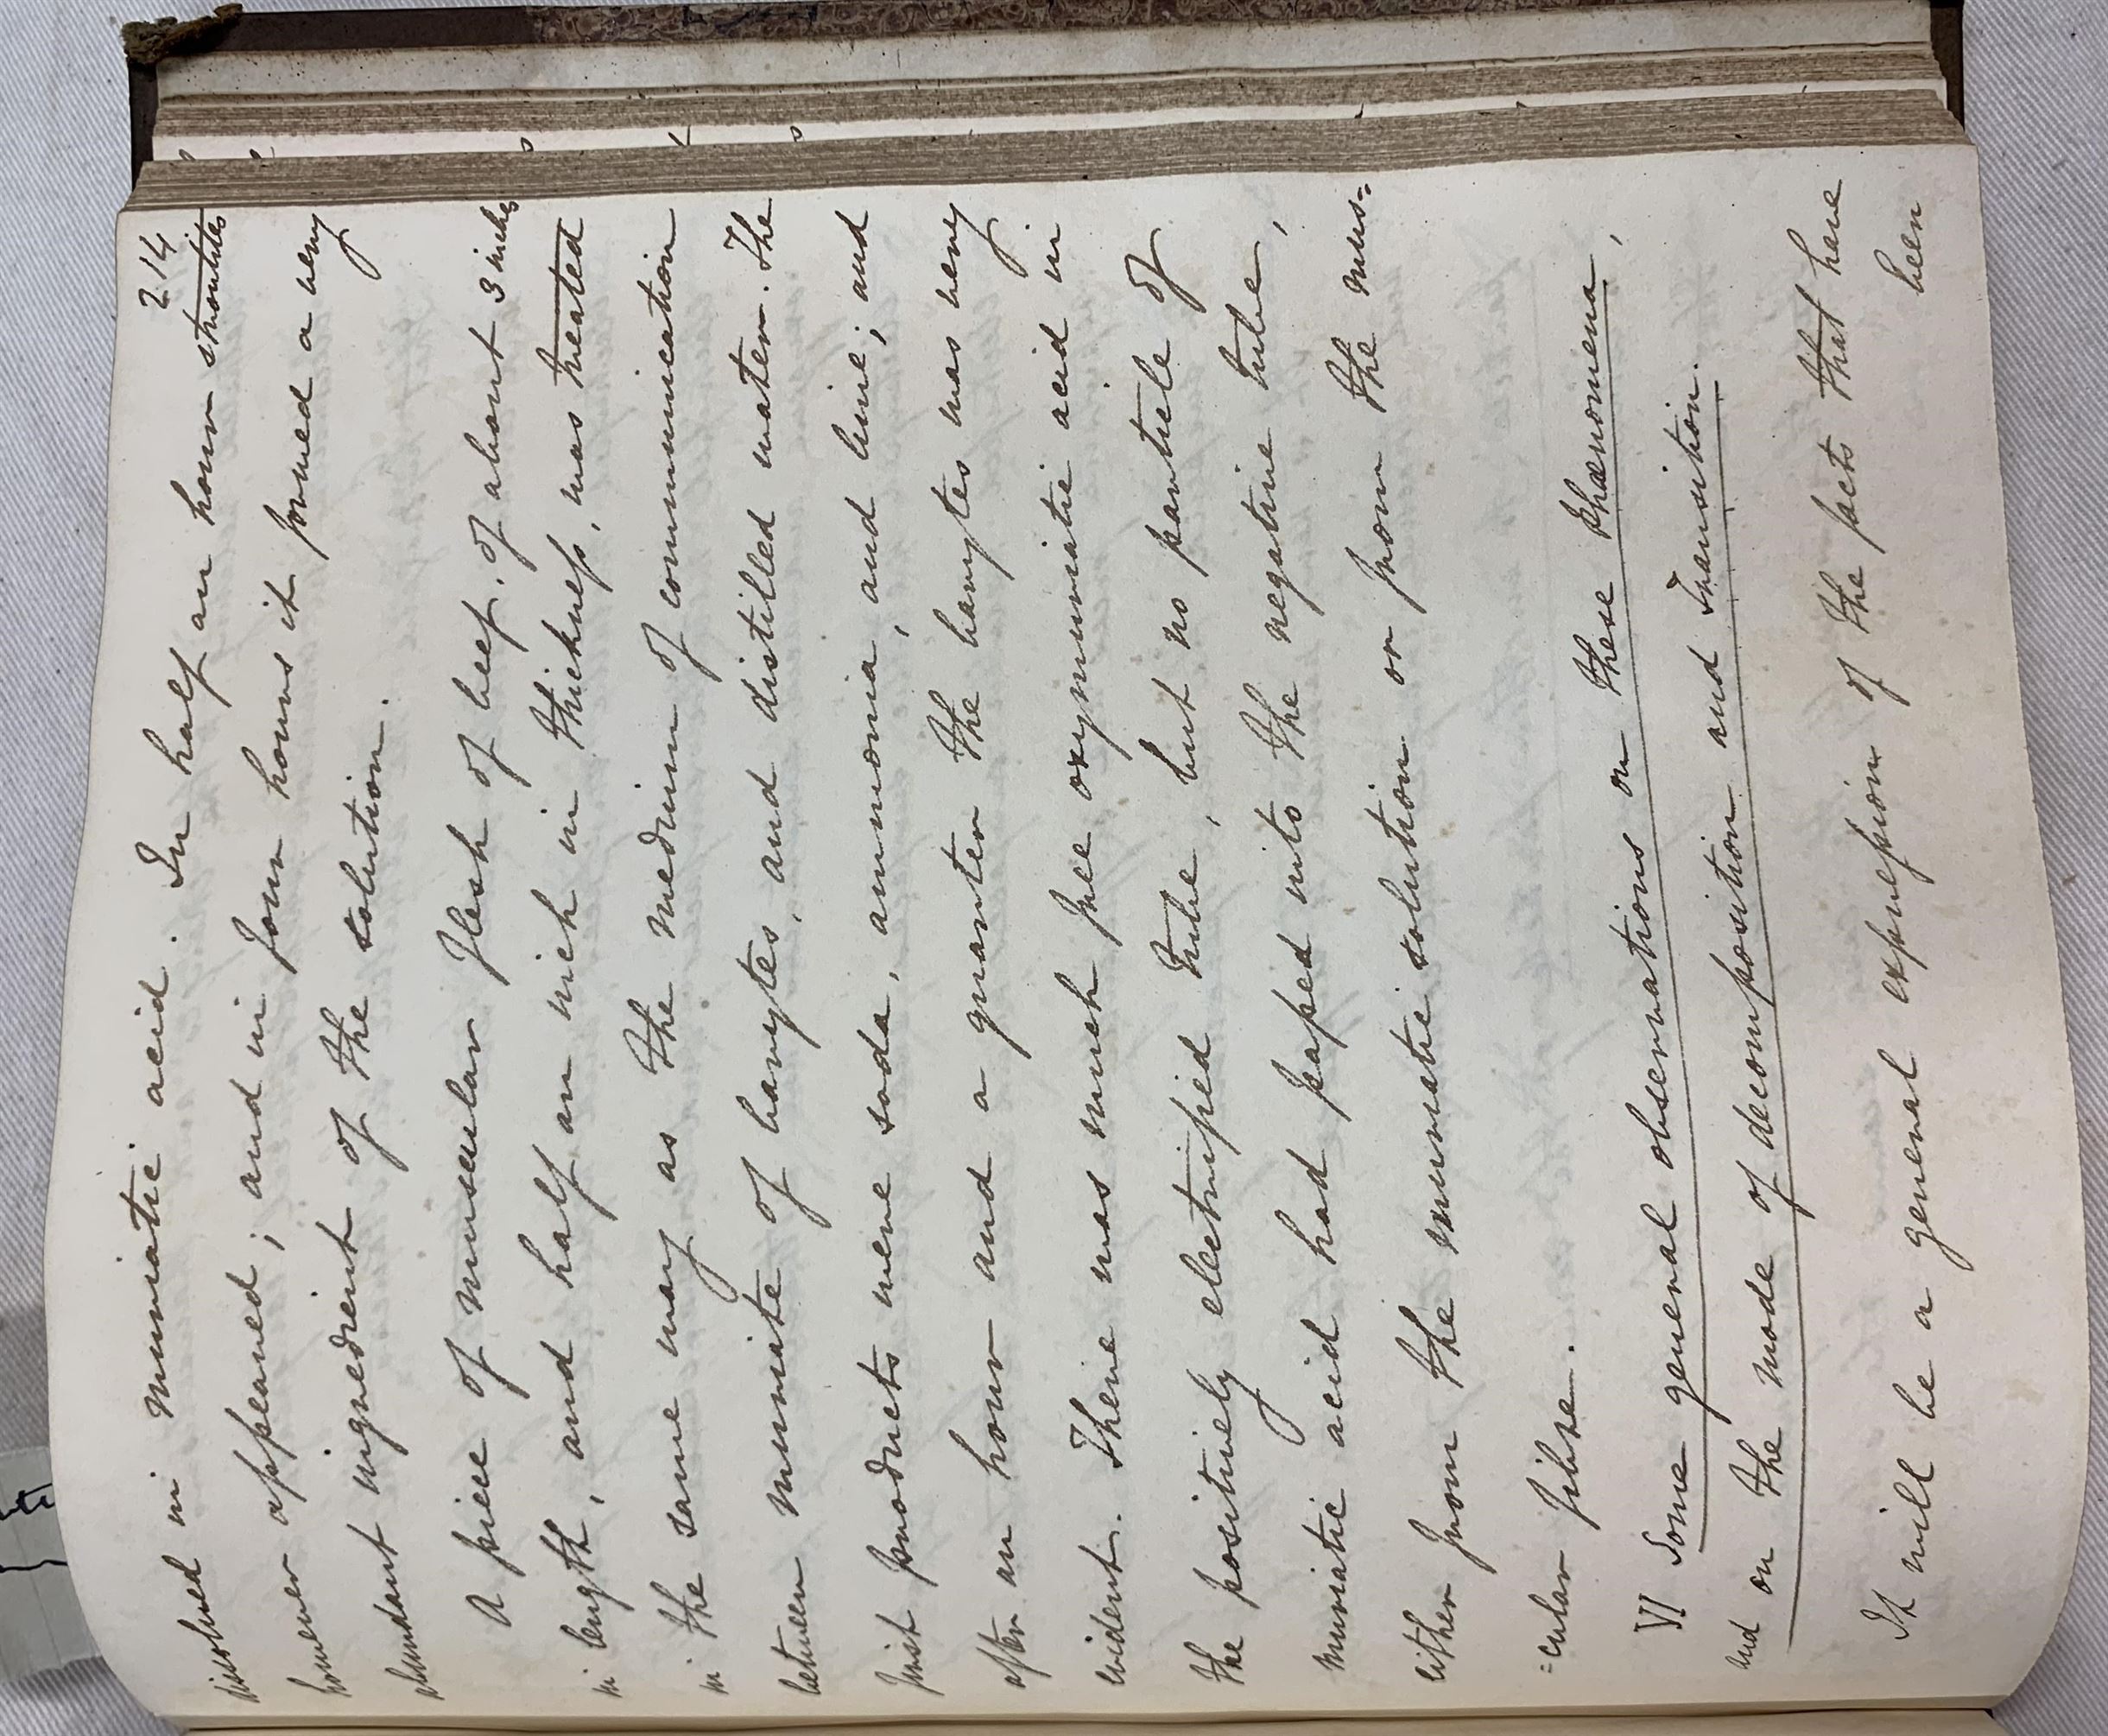 214
dissolved in muriatic acid. In half an hour strontites
however appeared; and in four hours it formed a very
abundant ingredient of the solution.
A piece of muscular flesh of beef, of about 3 inches
in length, and half an inch in thickness, was treated
in the same way as the medium of communication
between muriate of barytes, and distilled water. The
first products were soda, ammonia, and lime; and
after an hour and a quarter the barytes was very
evident. There was much free oxymuriatic acid in
the positively electrified tube, but no particle of
muriatic acid had passed into the negative tube,
either from the muriatic solution or from the mus=
=cular fibre.
VI Some general observations on these Phænomena,
and on the mode of decomposition and Transition.
It will be a general expression of the facts that have
been